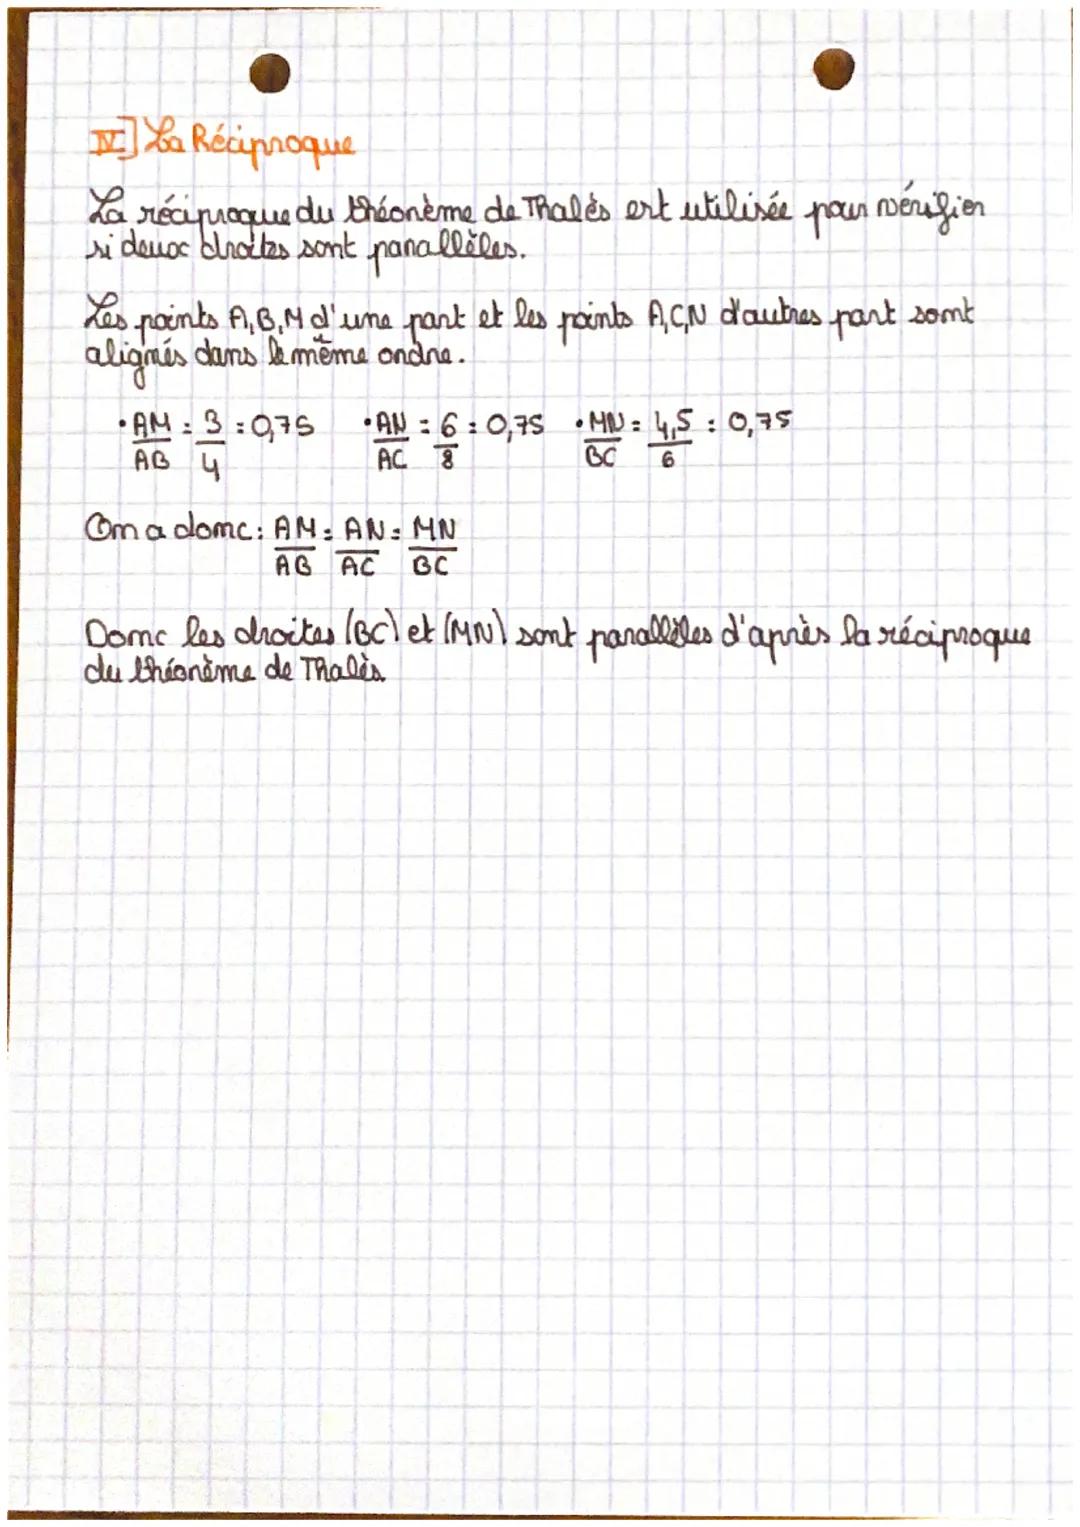 IV] La Réciproque
La réciproque du théorème de Thalès est utilisée pour vérifier
si deux droites sont parallèles.
Les points A,B,M d'une part et les points A,C,N d'autres part sont
alignés dans le même ordre.
• AM/AB = 3/4 = 0,75 • AN/AC = 6/8 = 0,75 • MN/BC = 4,5/6 = 0,75
On a donc : AM/AB = AN/AC = MN/BC
Donc les droites (BC) et (MN) sont parallèles d'après la réciproque
du théorème de Thalès